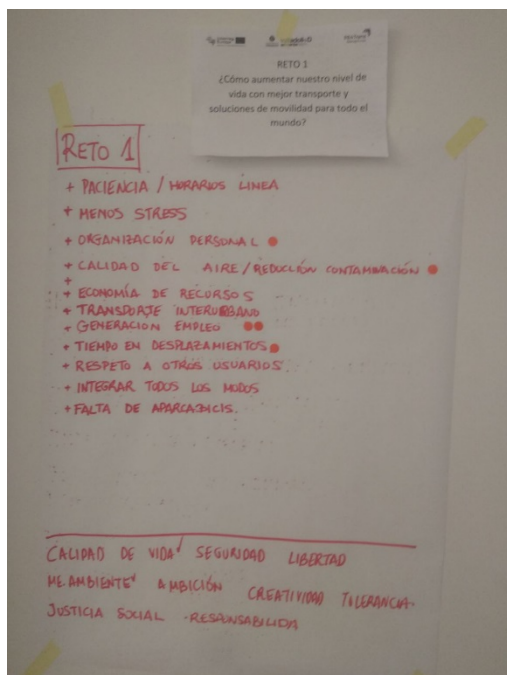 RETO 1
¿Cómo aumentar nuestro nivel de
vida con mejor transporte y
soluciones de movilidad para todo el
mundo?
RETO 1
+ PACIENCIA / HORARIOS LINEA
+ MENOS STRESS
+ ORGANIZACIÓN PERSONAL
+ CALIDAD DEL AIRE/REDUCCIÓN CONTAMINACIÓN
+
+ ECONOMÍA DE RECURSOS
+ TRANSPORTE INTERURBANO
+ GENERACION EMPLEO
+ TIEMPO EN DESPLAZAMIENTOS
+ RESPETO A OTROS USUARIOS
+ INTEGRAR TODOS LOS MODOS
+ FALTA DE APARCABICIS.
CALIDAD DE VIDA SEGURIDAD LIBERTAD
ME.AMBIENTE AMBICIÓN CREATIVIDAD TOLERANCIA
JUSTICIA SOCIAL - RESPONSABILIDA